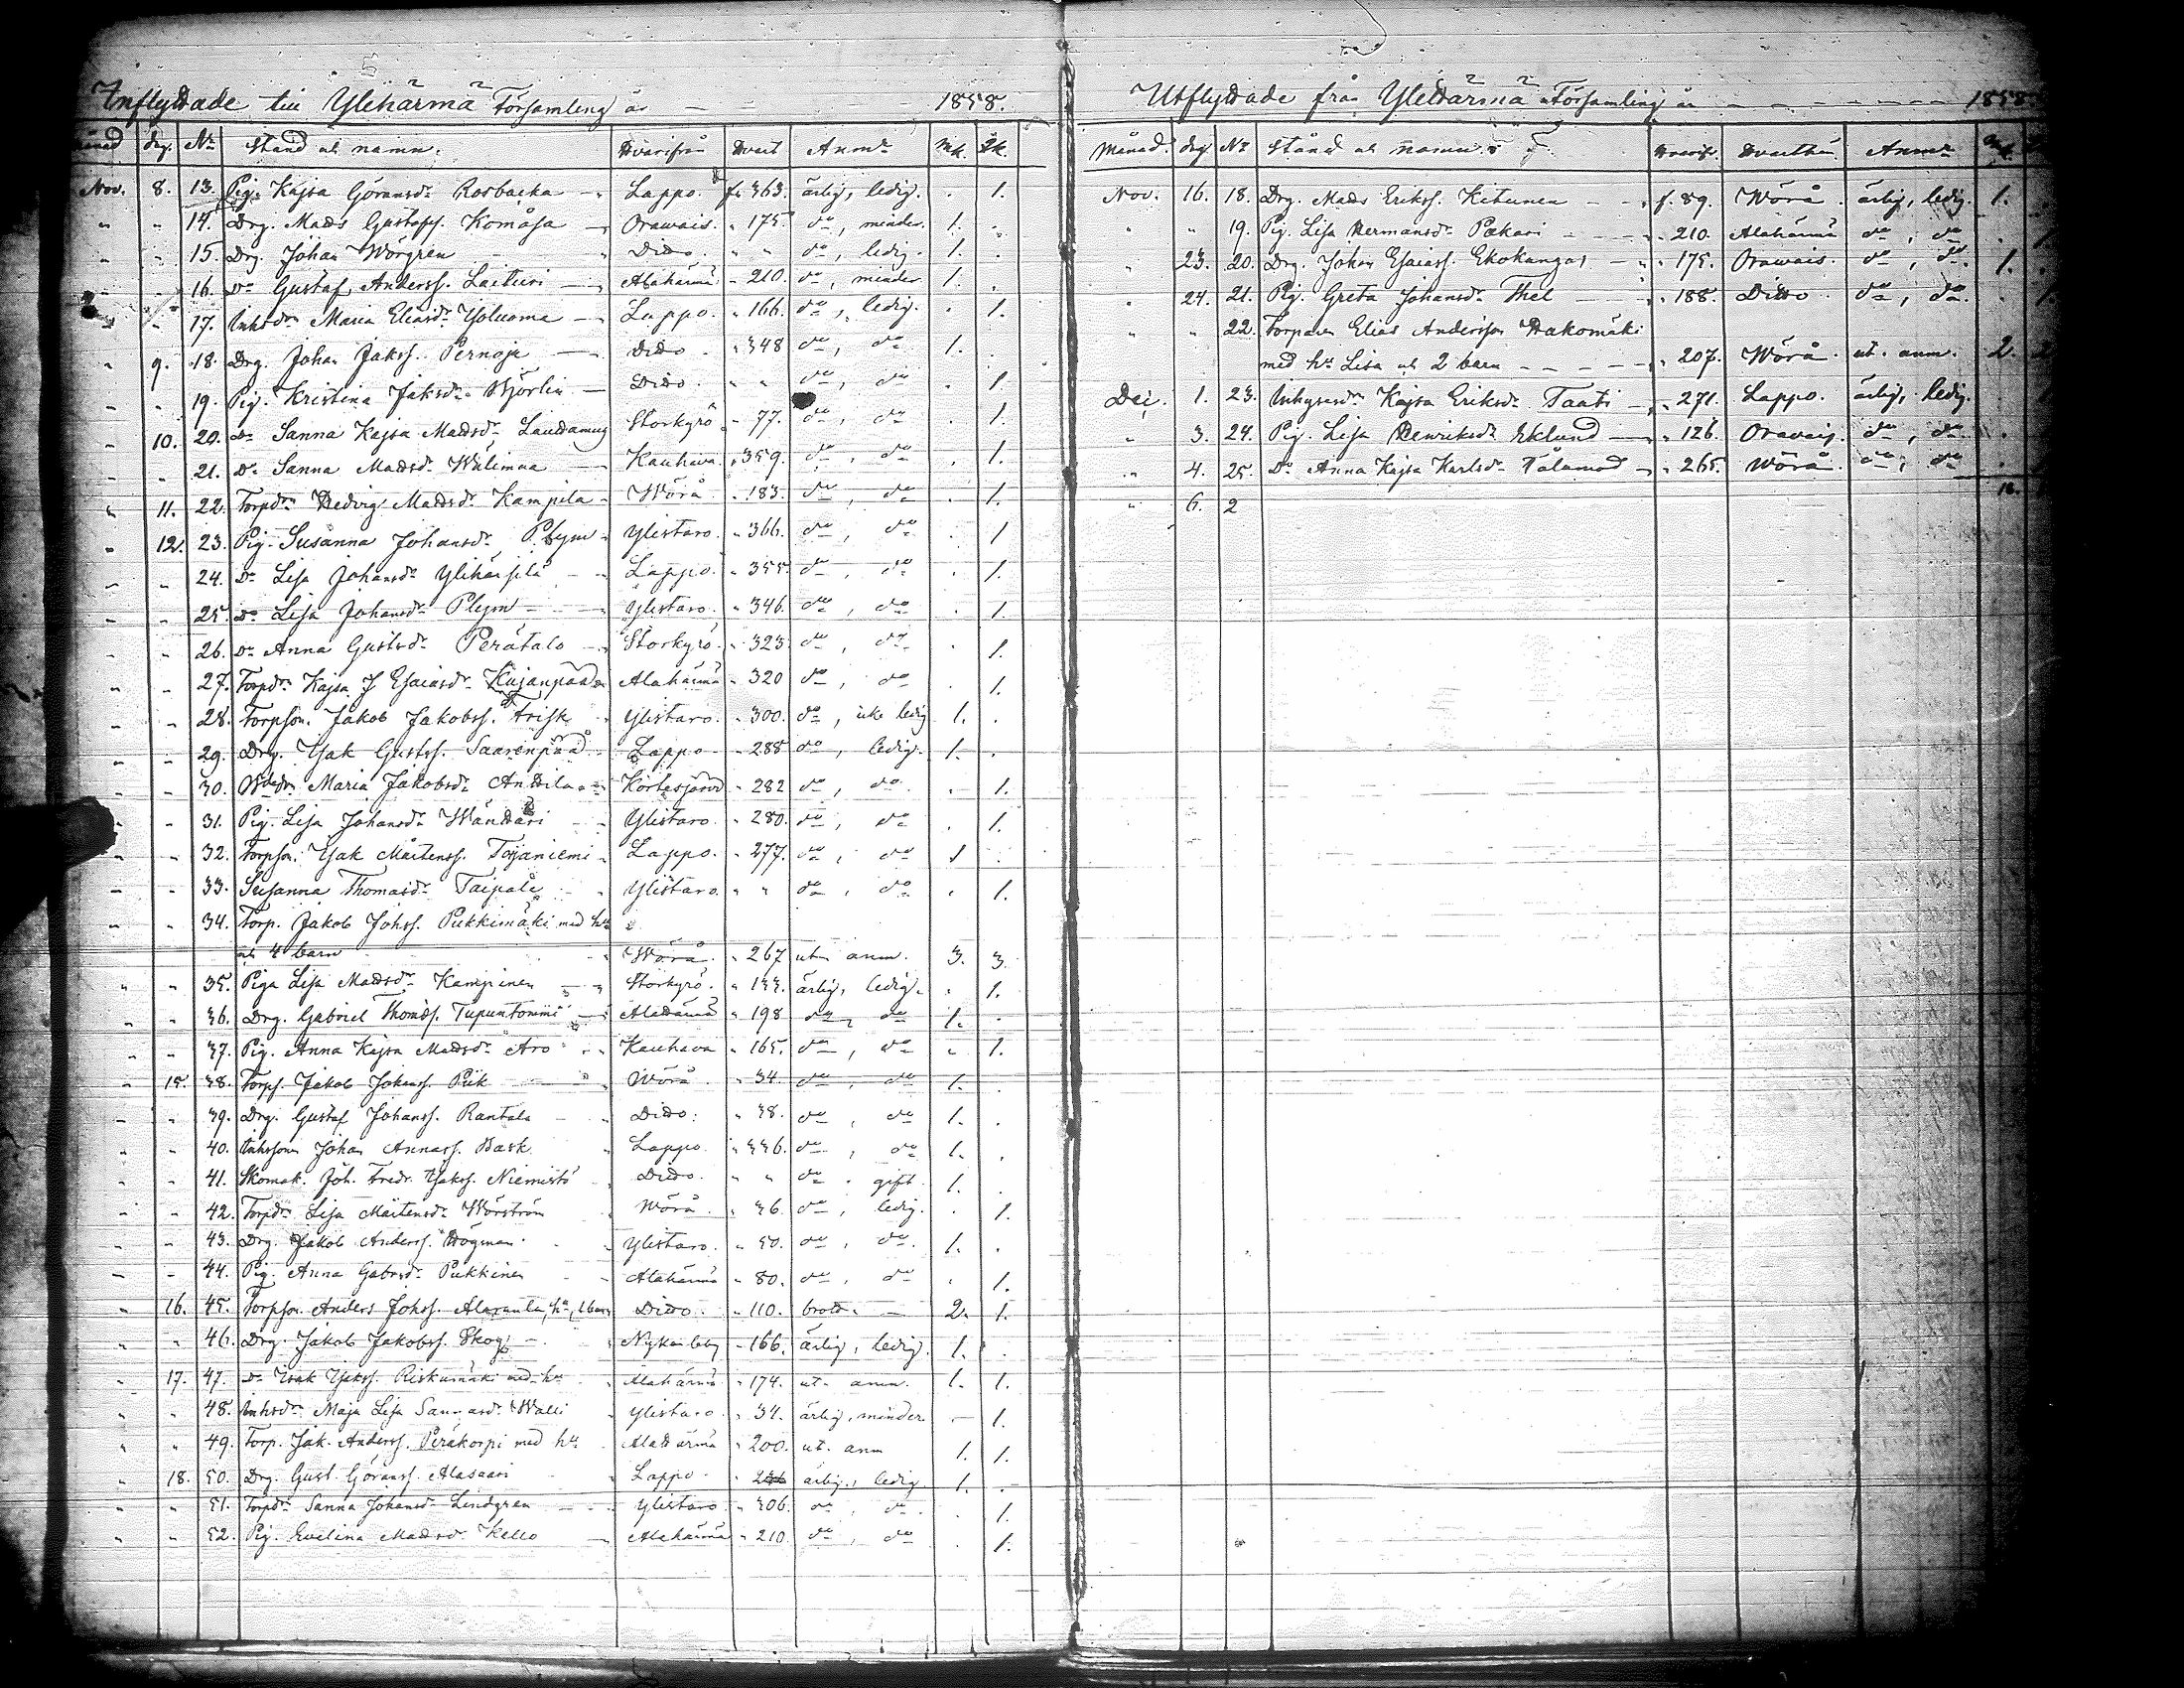 Inflyttade till Ylihärmä Församling år 1858.
månad dag. No Stånd och namn. Hvarifrån Hvart Anmr Mk. Qk.
Nov. 8. 13. Pig. Kajsa Göransdr Rosbacka Lappo. f. 363. ärlig, ledig. . 1.
" " 14. Drg. Matts Gustafss. Komåsa Orawais. " 175 do, minder. 1. .
" " 15. Drg. Johan Wörgren Ditto. " " do, ledig. 1. .
" " 16. Do Gustaf Anderss. Laituri Alahärmä " 210. do, minder 1. .
" " 17. Inhsdr Maria Eliasdr Yoluoma Lappo. " 166. do, ledig. . 1.
" 9. 18. Drg. Johan Jakss. Pernaja Ditto. " 348 do, do 1. .
" " 19. Pig. Kristina Jaksdr Björlin Ditto. " " do, do . 1
" 10. 20. Do Sanna Kajsa Mattsdr Storkyrö " 77. do, do . 1.
" " 21. Do Sanna Mattsdr Wälimaa Kauhava. " 359. do, do . 1.
" 11. 22. Torpdr Hedvig Mattsdr Kampila Wörå " 183. do, do . 1.
" 12. 23. Pig. Susanna Johansdr Plym Ylistaro. " 366. do, do . 1
" " 24. Do Lisa Johansdr Ylihärsilä Lappo. " 355. do, do . 1.
" " 25. Do Lisa Johansdr Plym Ylistaro. " 346. do, do . 1.
" " 26. Do Anna Gustsdr Perätalo Storkyrö. " 323. do, do . 1.
" " 27. Torpdr Kajsa J Esaiasdr Kujanpää Alahärmä " 320 do, do . 1.
" " 28. Torpson. Jakob Jakobss. Frisk Ylistaro. " 300. do, icke ledig 1. .
" " 29. Drg. Isak Gustss. Saarenpää Lappo " 288 do, ledig. 1. .
" " 30. Maria Jakobsdr Anttila Kortesjärvi " 282 do, do . 1.
" " 31. Pig. Lisa Johansdr Wänttäri Ylistaro. " 280. do, do . 1.
" " 32. Torpson. Isak Mårtenss. Tojaniemi Lappo. " 277. do, do 1 .
" " 33. Susanna Thomasdr Taipale Ylistaro. " " do, do . 1.
" " 34. Torp. Jakob Johss. Pukkimäki med hu
och 4 barn Wörå. " 267 utn anm. 3. 3.
" " 35. Piga Lisa Mattsdr Kampinen Storkyrö. " 133. ärlig, ledig. . 1.
" " 36. Drg. Gabriel Thomass. Tupuntommi Alahärmä " 198 do, do 1. .
" " 37. Pig. Anna Kajsa Mattsdr Aro Kauhava " 165. do, do " 1.
" 15. 38. Torps. Jakob Johanss. Puk Wörå. " 34. do, do 1. .
" " 39. Drg. Gustaf Johanss. Rantala Ditto. " 38. do, do 1. .
" " 40. Inhsson Johan Annass. Bask Lappo. " 336. do, do 1. .
" " 41. Skomak. Joh. Fredr. Isakss. Niemistö Ditto. " " do. gift. 1. .
" " 42. Torpdr Lisa Mårtensdr Wörström Wörå. " 36. do, ledig. . 1.
" " 43. Drg. Jakob Anderss. Högman Ylistaro. " 50. do, do. 1. .
" " 44. Pig. Anna Gabrsdr Pukkinen Alahärmä " 80. do, do . 1.
" 16. 45. Torpson Anders Johss. hu, 1 barn Ditto. " 110. brott. 2. 1.
" " 46. Drg. Jakob Jakobss. Skog Nykarleby " 166. ärlig, ledig. 1. .
" 17. 47. Do Isak Isakss. Riskumäki med hu Alahärmä " 174. utn anm. 1. 1.
" " 48. Inhsdr Maja Lisa Sannasdr Walli Ylistaro " 34. ärlig, minder. 1.
" " 49. Torp. Jak. Anderss. Peräkorpi med hu Alahärmä " 200. ut. anm 1. 1.
" 18. 50. Drg. Gust. Göranss. Alasaari Lappo. " ärlig, ledig 1. .
" " 51. Torpdr Sanna Johansdr Lindgren Ylistaro " 306. do, do. . 1.
" " 52. Pig. Evelina Mattsdr Kello Alahärmä " 210. do, do . 1.
Utflyttade från Ylihärmä Församling år 1858
Månad. dag No Stånd och namn. Hvarifr. Hvarthän. Anmr Mk.
Nov. 16. 18. Drg. Matts Erikss. Kitunen f. 89. Wörå. ärlig, ledig. 1.
" " 19. Pig. Lisa Hermansdr Pakari " 210. Alahärmä do, do . 1
" 23. 20. Drg. Johan Esaiass. Ekokangas " 175. Orawais. do, do. 1. .
" 24. 21. Pig. Greta Johansdr Thel " 188. Ditto. do, do.
" " 22. Torparen Elias Andersson Hakomäki
med hu Lisa och 2 barn " 207. Wörå. ut. anm. 2. 2
Dec. 1. 23. Inhysesdr Kajsa Eriksdr Taati " 271. Lappo. ärlig, ledig.
" 3. 24. Pig. Lisa Henriksdr Eklund " 126. Oravais. do, do.
" 4. 25. Do Anna Kajsa Karlsdr Tålamod " 265. Wörå. do, do
" 6. 2